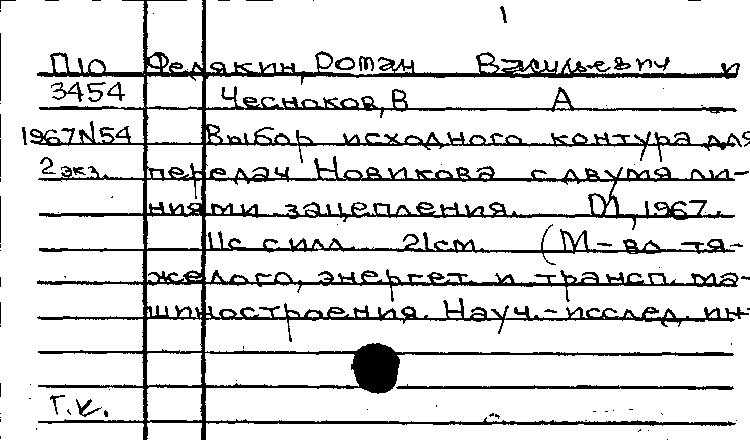 1
П10 Федякин, Роман Васильевич и
3454 Чесноков, В А
1967N54 Выбор исходного контура для
2 экз. передач Новикова с двумя ли-
ниями зацепления. М, 1967.
11с с илл. 21см. (М-во тя-
желого, энергет. и трансп. ма-
шиностроения. Науч.-исслед. ин-
Г.К.